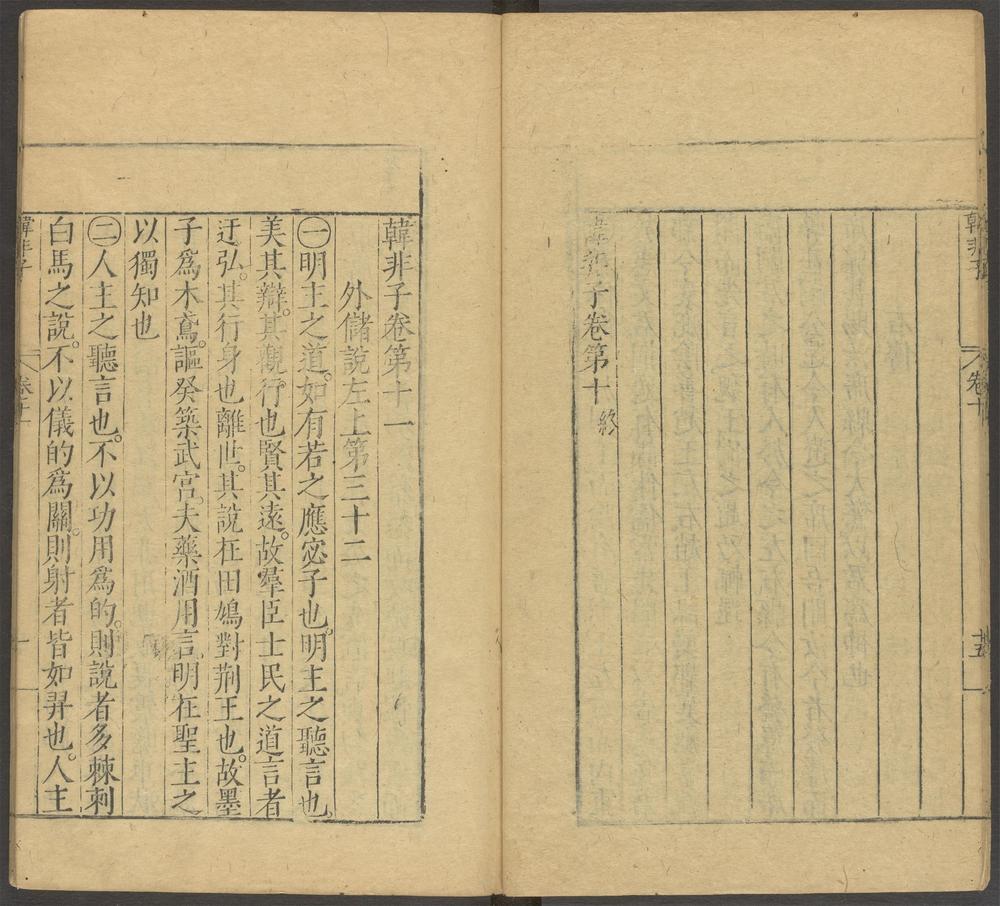 韓非子
卷十
十五
韓非子卷第十 終
韓非子卷第十一
外儲說左上第三十二
㊀明主之道。如有若之應宓子也。明主之聽言也。
美其辯。其觀行也賢其遠。故羣臣士民之道言者
迂弘。其行身也離世。其說在田鳩對荆王也。故墨
子爲木鳶。謳癸築武宮。夫藥酒用言。明在聖主之
以獨知也
㊁人主之聽言也。不以功用爲的。則說者多棘刺
白馬之說。不以儀的爲關。則射者皆如羿也。人主
韓非子
卷十一
一